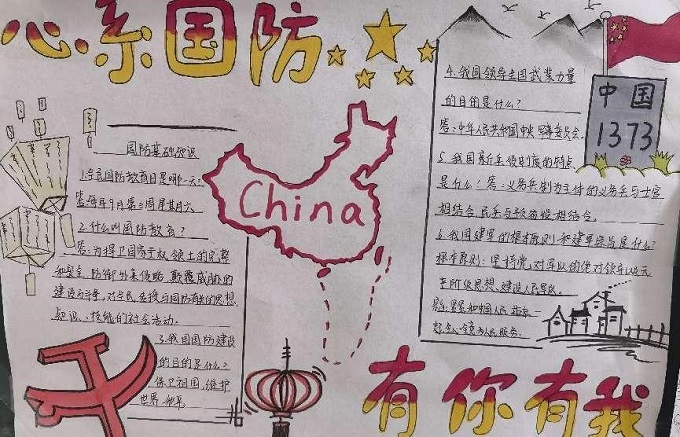 心系国防
国防基础知识
1.全民国防教育日是哪一天?
答:每年9月第三周星期六
2.什么叫国防教育?
答:为捍卫国家主权、领土的完整
和安全,防御外来侵略、颠覆威胁的
建设与斗争,对全民
知识、技能的社会活动。
3.我国国防建设
的目的是什么?
保卫祖国,维护
世界和平
China
4.我国领导全国武装力量
的目的是什么?
答:中华人民共和国中央军事委员会
5.我国新兵役制度的特点
是什么?答:义务兵制为主体的义务兵与士官
相结合,民兵与预备役相结合。
6.我国建军的根本原则和建军宗旨是什么?
根本原则:坚持党对军队的绝对领导
无产阶级思想建设人民军队。
宗旨:紧紧和中国人民站在一
起全心全意为人民服务。
中国
1373
有你有我